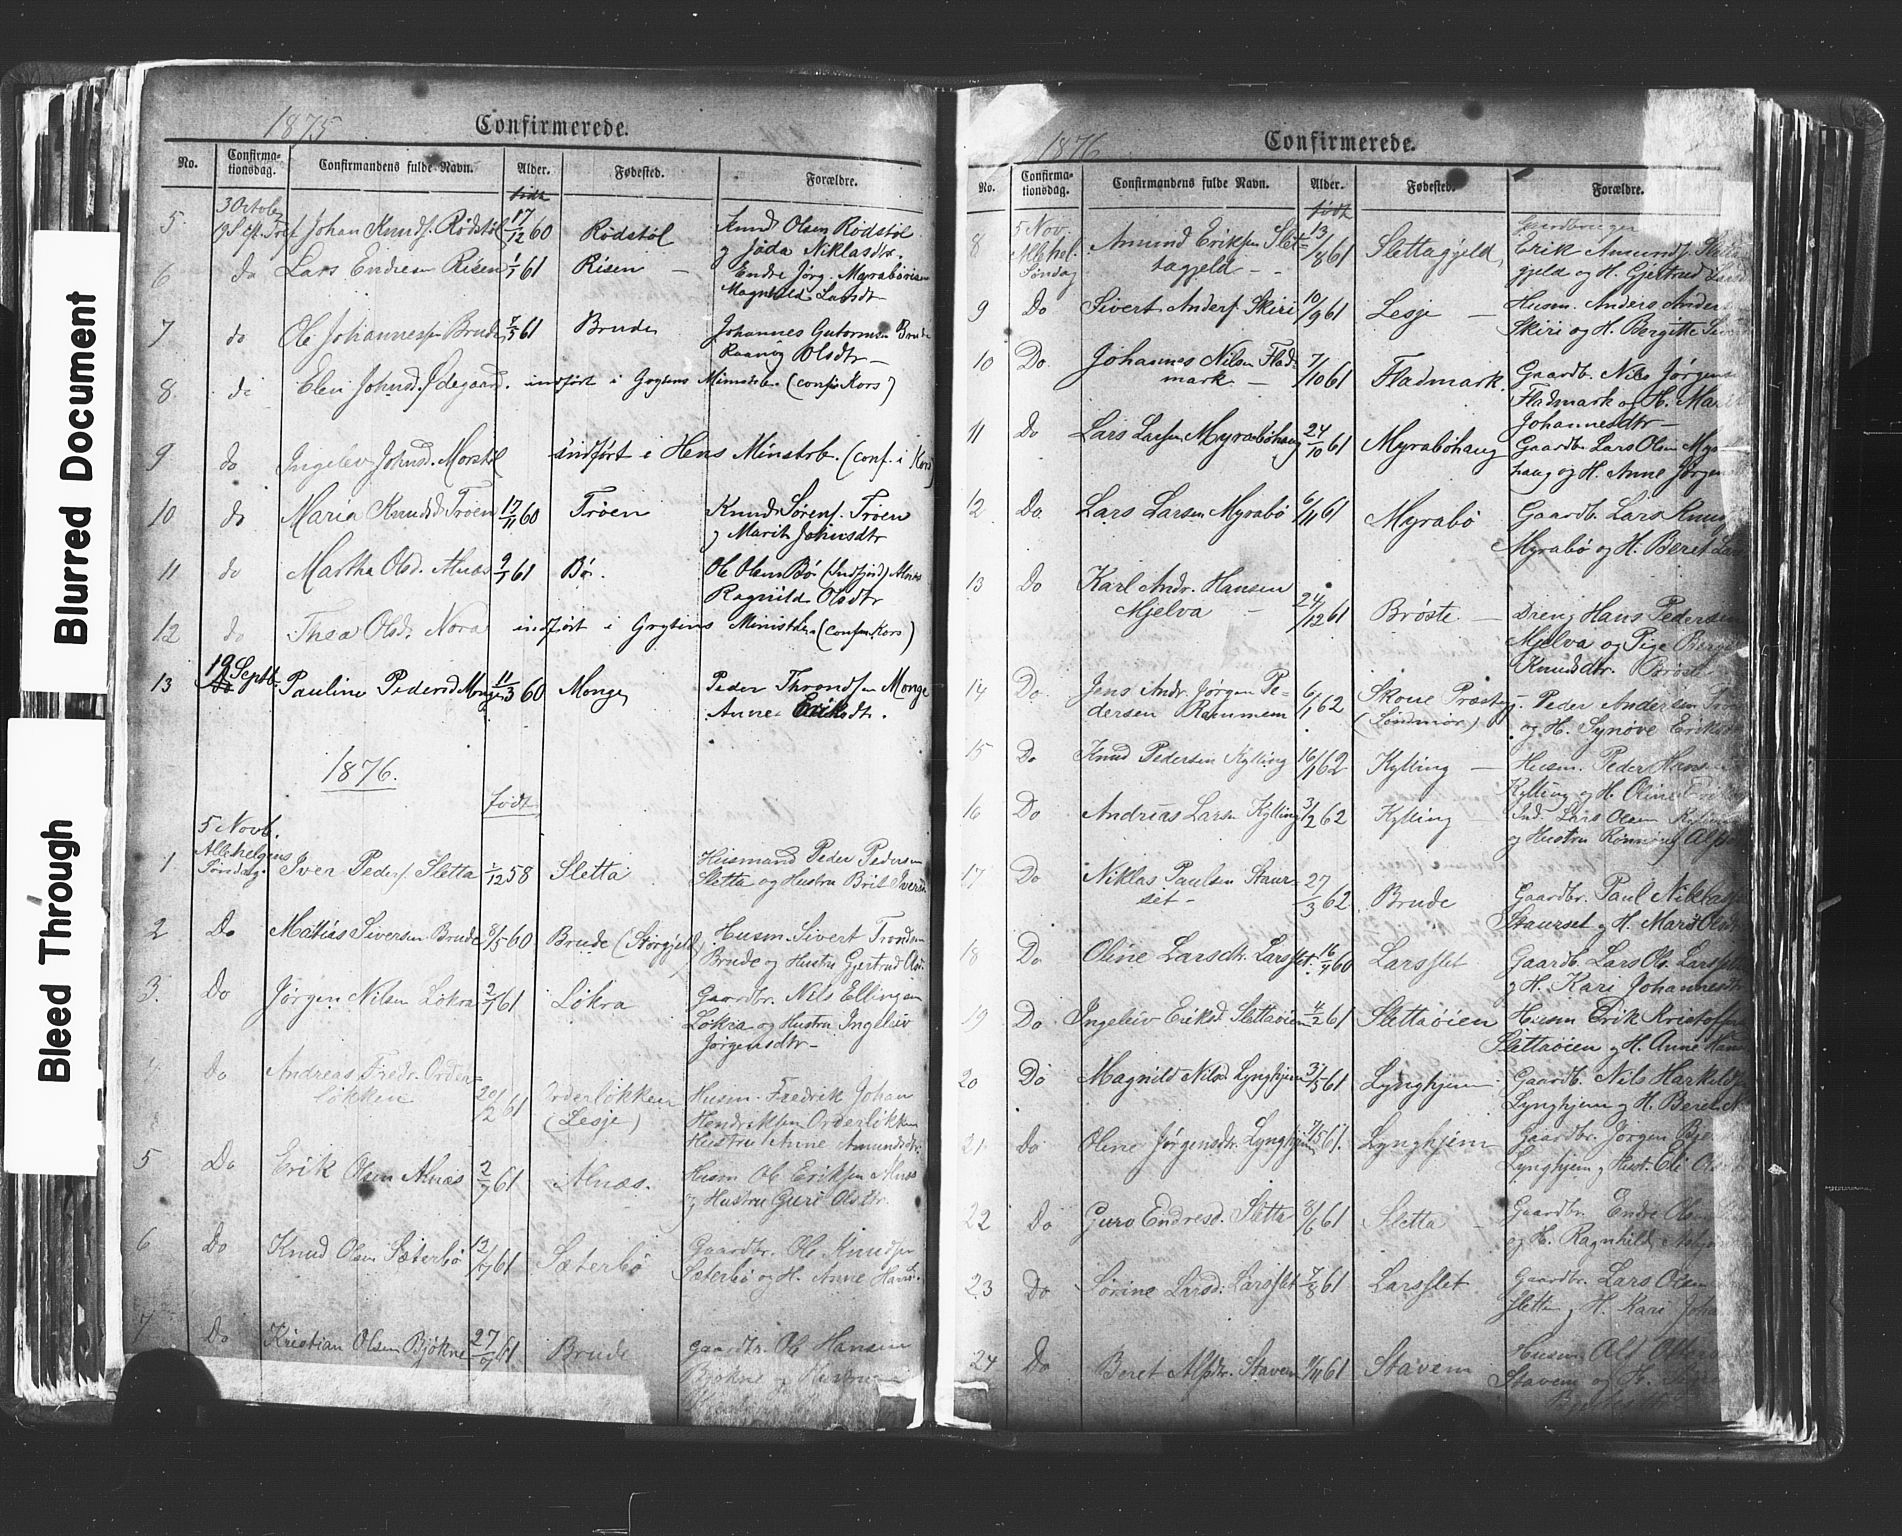 Blurred Document
Bleed Through
1875
Confirmerede.
No. Confirma-tionsdag. Confirmandens fulde Navn. Alder. Fødested. Forældre.
født
3 October
5 Johan Knuds. Rødstøl 17/12 60 Rødstøl Knud Olsen Rødstøl
g Jøda Niklasdtr.
6 do Lars Endresen Risen 1/1 61 Risen — Endre Jørg. Myrabø
Magnhild Larsdtr
7 do Ole Johannesen Brude 7/3 61 Brude Johannes Gutormsen Brude
Raanøg Olsdtr —
8 do Elen Johnsd. Ødegaard. indført i Grytens Ministb. (conf. i Kors)
9 do Ingelev Johnsd. Morstøl indført i Hens Minstrb. (conf. i Kors)
10 do Maria Knudsd. Troen 17/11 60 Troen Knud Sørens. Troen
g Marit Johnsdtr
11 do Martha Olsd. Alnæs 2/1 61 Bø. Ole Olsen Bø (Indfjord) Alnæs
Ragnild Olsdtr
12 do Thea Olsd. Nora indført i Grytens Ministb. (conf. i Kors)
13 19 Septb. Pauline Pedersd Monge 11/3 60 Monge Peder Throndsen Monge
Anne Eriksdtr.
1876.
født
5 Novb.
Allehelgens
1 Søndag. Iver Peders. Sletta 1/12 58 Sletta Husmand Peder Pedersen
Sletta og Hustru Brit Iversd
2 Do Mathias Sivertsen Brude 8/5 60 Brude (Storgjeld) Husm. Sivert Trondsen
Brude og Hustru Gjertrud Ols.
3. Do Jørgen Nilsen Løkra 2/1 61 Løkra Gaardbr. Nils Ellingsen
Løkra og Hustru Ingeleiv
Jørgensdtr —
4 Do Andreas Fredr. Orden=
løkken 20/2 61 Orderløkken Husm. Fredrik Johan
(Lesje) Hendriksen Orderløkken
Hustru Anne Amundsdtr.
5 Do Erik Olsen Alnæs 2/7 61 Alnæs. Husm Ole Eriksen Alnæs
og Hustru Guri Olsdtr.
6 Do Knud Olsen Sæterbø 12/7 61 Sæterbø Gaardbr. Ole Knudsen
Sæterbø og H. Anne Hans.
7 Do Kristian Olsen Bjøkne 27/7 61 Brude Gaardbr. Ole Hansen
Bjøkne og Hustru
1876
Confirmerede.
No. Confirma-tionsdag. Confirmandens fulde Navn. Alder. Fødested. Forældre.
født
5 Nov. Gaardbruger
8 Allehel. Amund Eriksen Slet= 13/8 61 Slettagjeld Erik Amunds. Sletta
Søndag tagjeld — gjeld og H. Gjertrud
9 Do Sivert Anders. Skiri 10/9 61 Lesje — Husm. Anders Anders
Skiri og H. Bergitte
10 Do Johannes Nilsen Flad=
mark — 7/10 61 Fladmark. Gaardb. Nils Jørgens
Fladmark og H. Marit
Johannesdtr —
11 Do Lars Larsen Myrabøhaug 24/10 61 Myrabøhaug Gaardb. Lars Olsen Myr
haug og H. Anne Jørgen
12 Do Lars Larsen Myrabø 6/11 61 Myrabø Gaardb. Lars Knud
Myrabø og H. Beret Lars
13 Do Karl Andr. Hansen
Mjelva — 24/12 61 Brøste — Dreng Hans Pedersen
Mjelva og Pige Berge
Knudsdtr. Brøste
14 Do Jens Andr. Jørgen Pe- 6/1 62 Skoue Præsteg. Peder Andersen
dersen Rammem (Søndmør) og H. Synøve Eriksd
15 Do Knud Pedersen Kylling 16/1 62 Kylling — Husm. Peder Hans
Kylling og H. Oline
16 Do Andreas Larsen Kylling 3/2 62 Kylling — Ind. Lars Olsen Kylling
og Hustru Rønnøg
17 Do Niklas Paulsen Staur-
set — 27/3 62 Brude Gaardbr. Paul Niklas
Staurset og H. Marit Olsd
18 Do Oline Larsdtr. Larsslet. 16/7 60 Larsslet Gaardb. Lars Ols. Larsslet
g H. Kari Johannesdtr
19 Do Ingeleiv Eriksd. Slettaøien 4/2 61 Slettaøien Husm Erik Kristoffer
Slettaøien g H. Anne Hans
20 Do Magnild Nilsd. Lynghjem 31/5 61 Lynghjem Gaardb. Nils Harkelds
Lynghjem g H. Beret
21 Do Oline Jørgensdtr. Lynghjem 7/5 61. Lynghjem Gaardbr. Jørgen
Lynghjem g Hust. Eli
22 Do Guro Endresd. Sletta 8/6 61 Sletta — Gaardbr. Endre Ols
og H. Ragnhild
23 Do Sørine Larsd. Larsslet 7/8 61 Larsslet Gaardbr. Lars Olsen
slette g H. Kari Joha
24 Do Beret Alfsdtr. Stavem 9/11 61 Stavem Husm. Alf
Stavem og H.